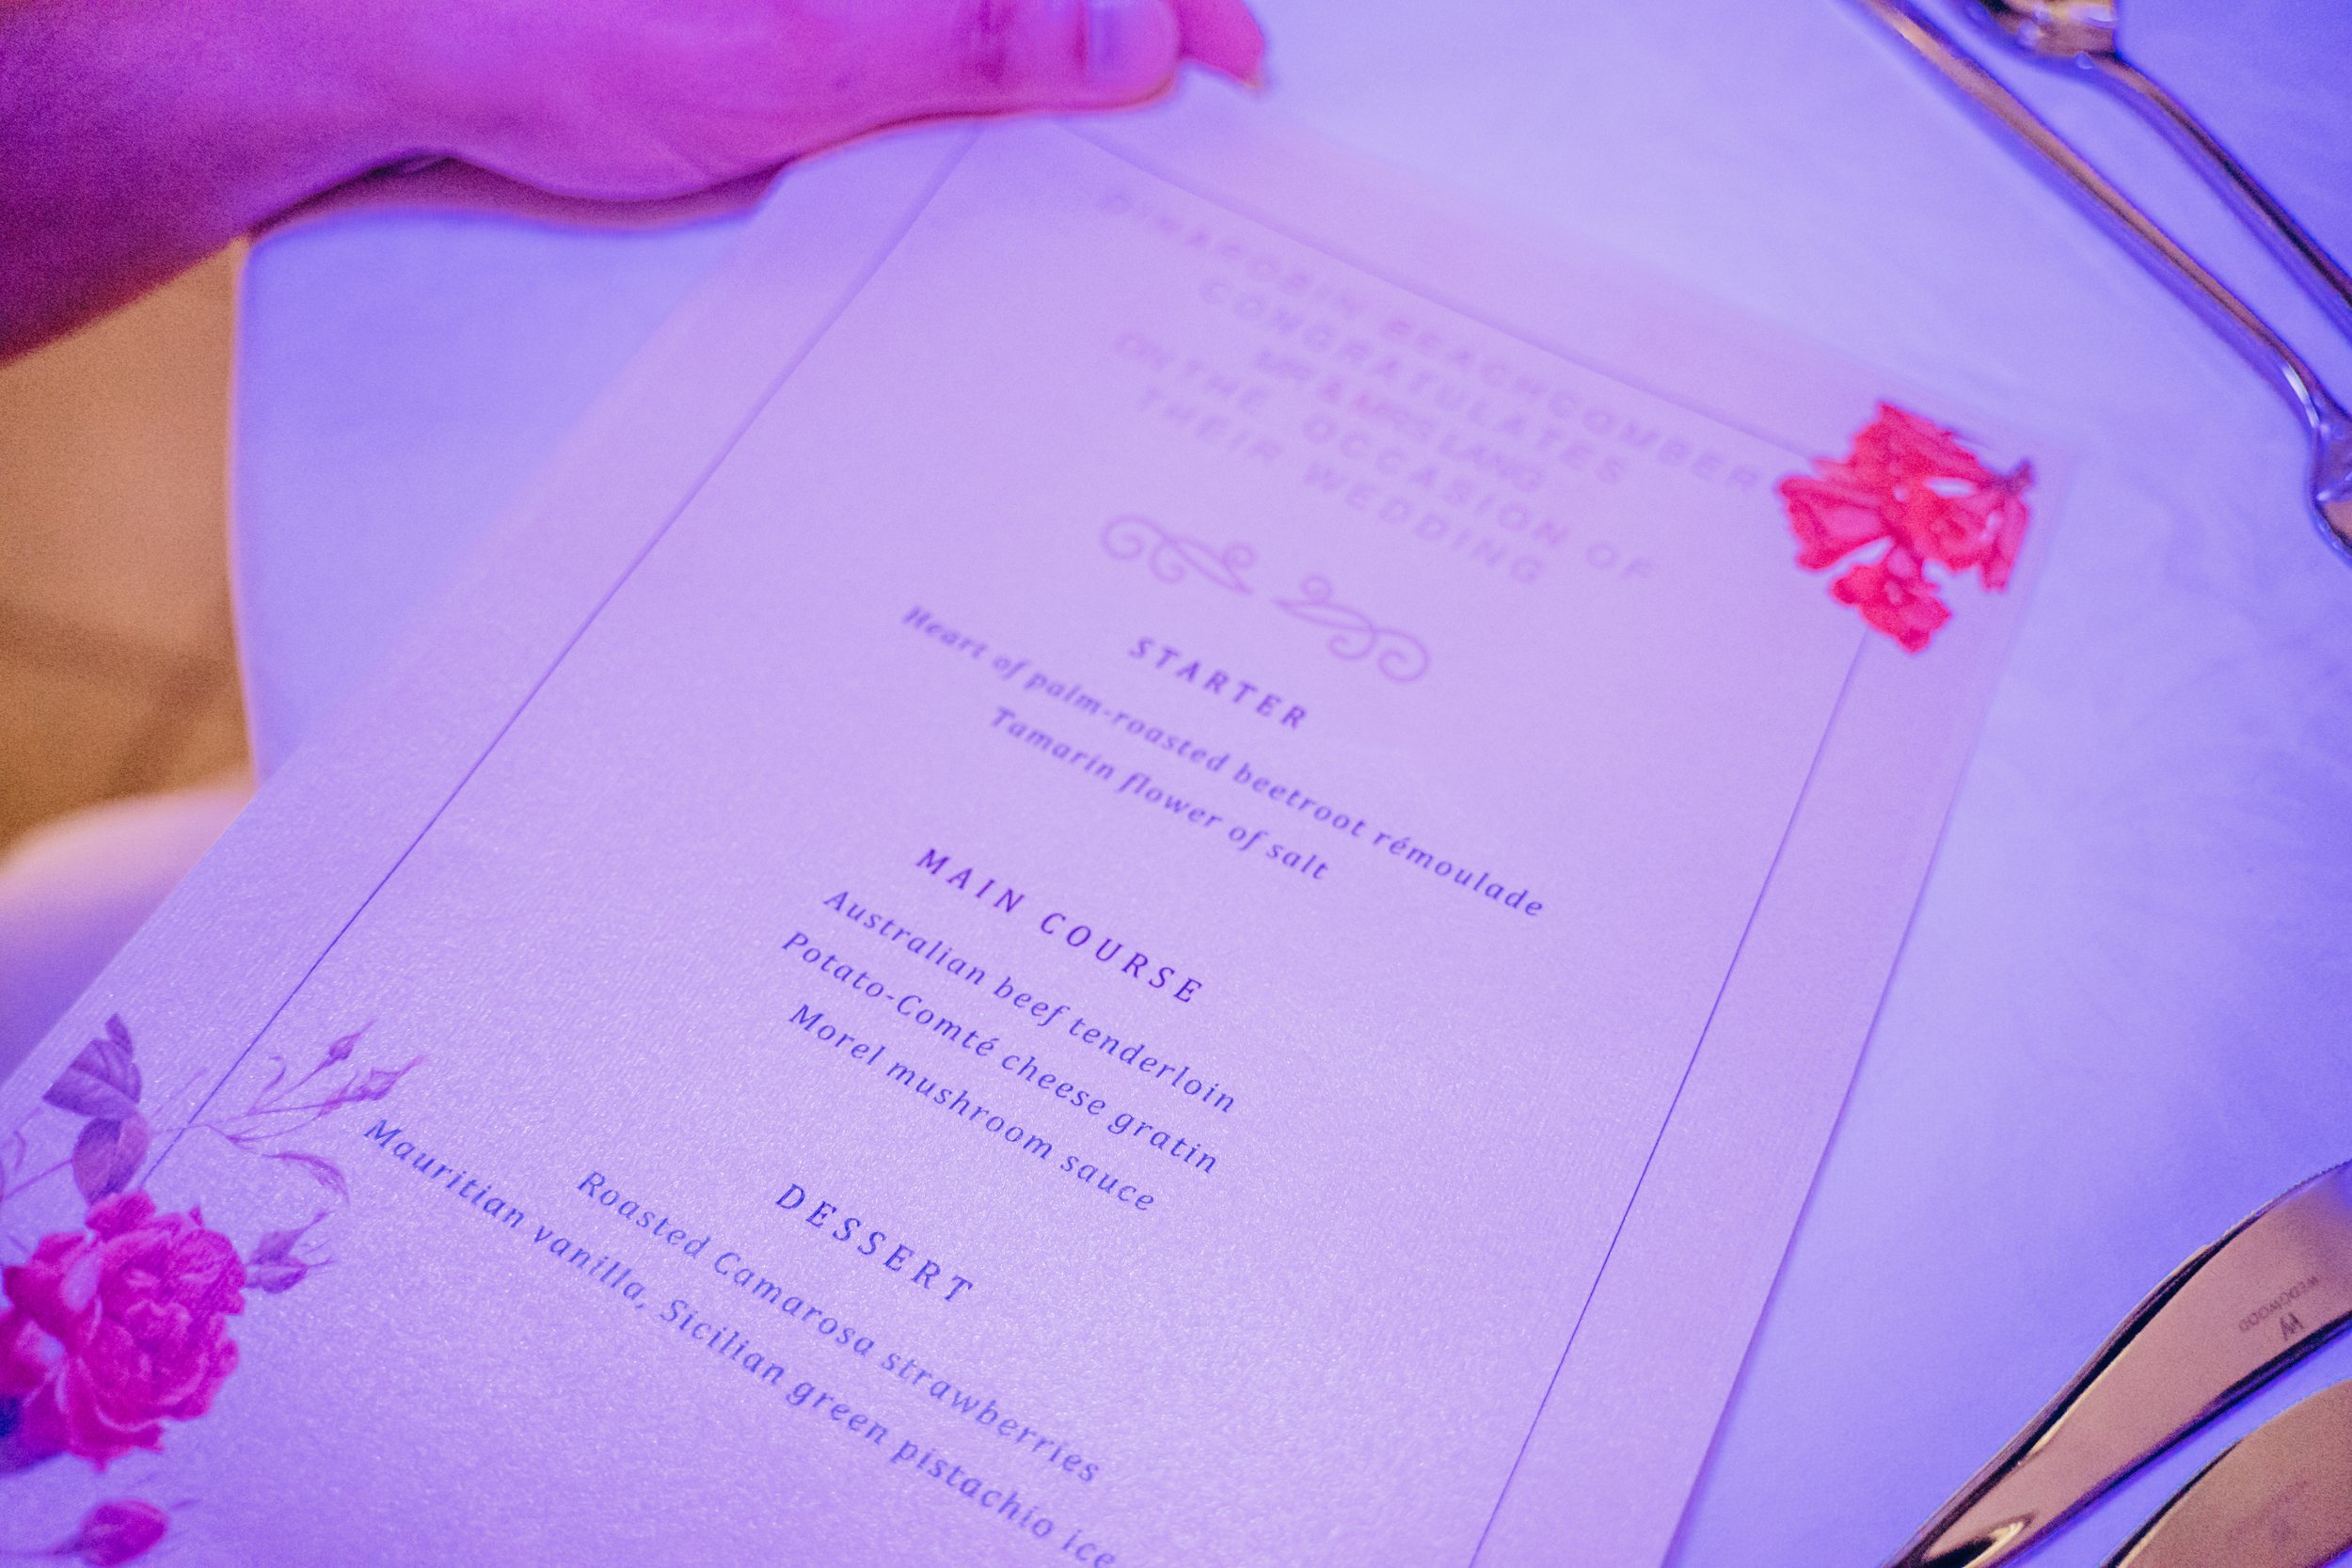 DINAROBIN BEACHCOMBER
CONGRATULATES
MR & MRS LANG
ON THE OCCASION OF
THEIR WEDDING
STARTER
Heart of palm-roasted beetroot rémoulade
Tamarin flower of salt
MAIN COURSE
Australian beef tenderloin
Potato-Comté cheese gratin
Morel mushroom sauce
DESSERT
Roasted Camarosa strawberries
Mauritian vanilla, Sicilian green pistachio ice
W
WEDGWOOD